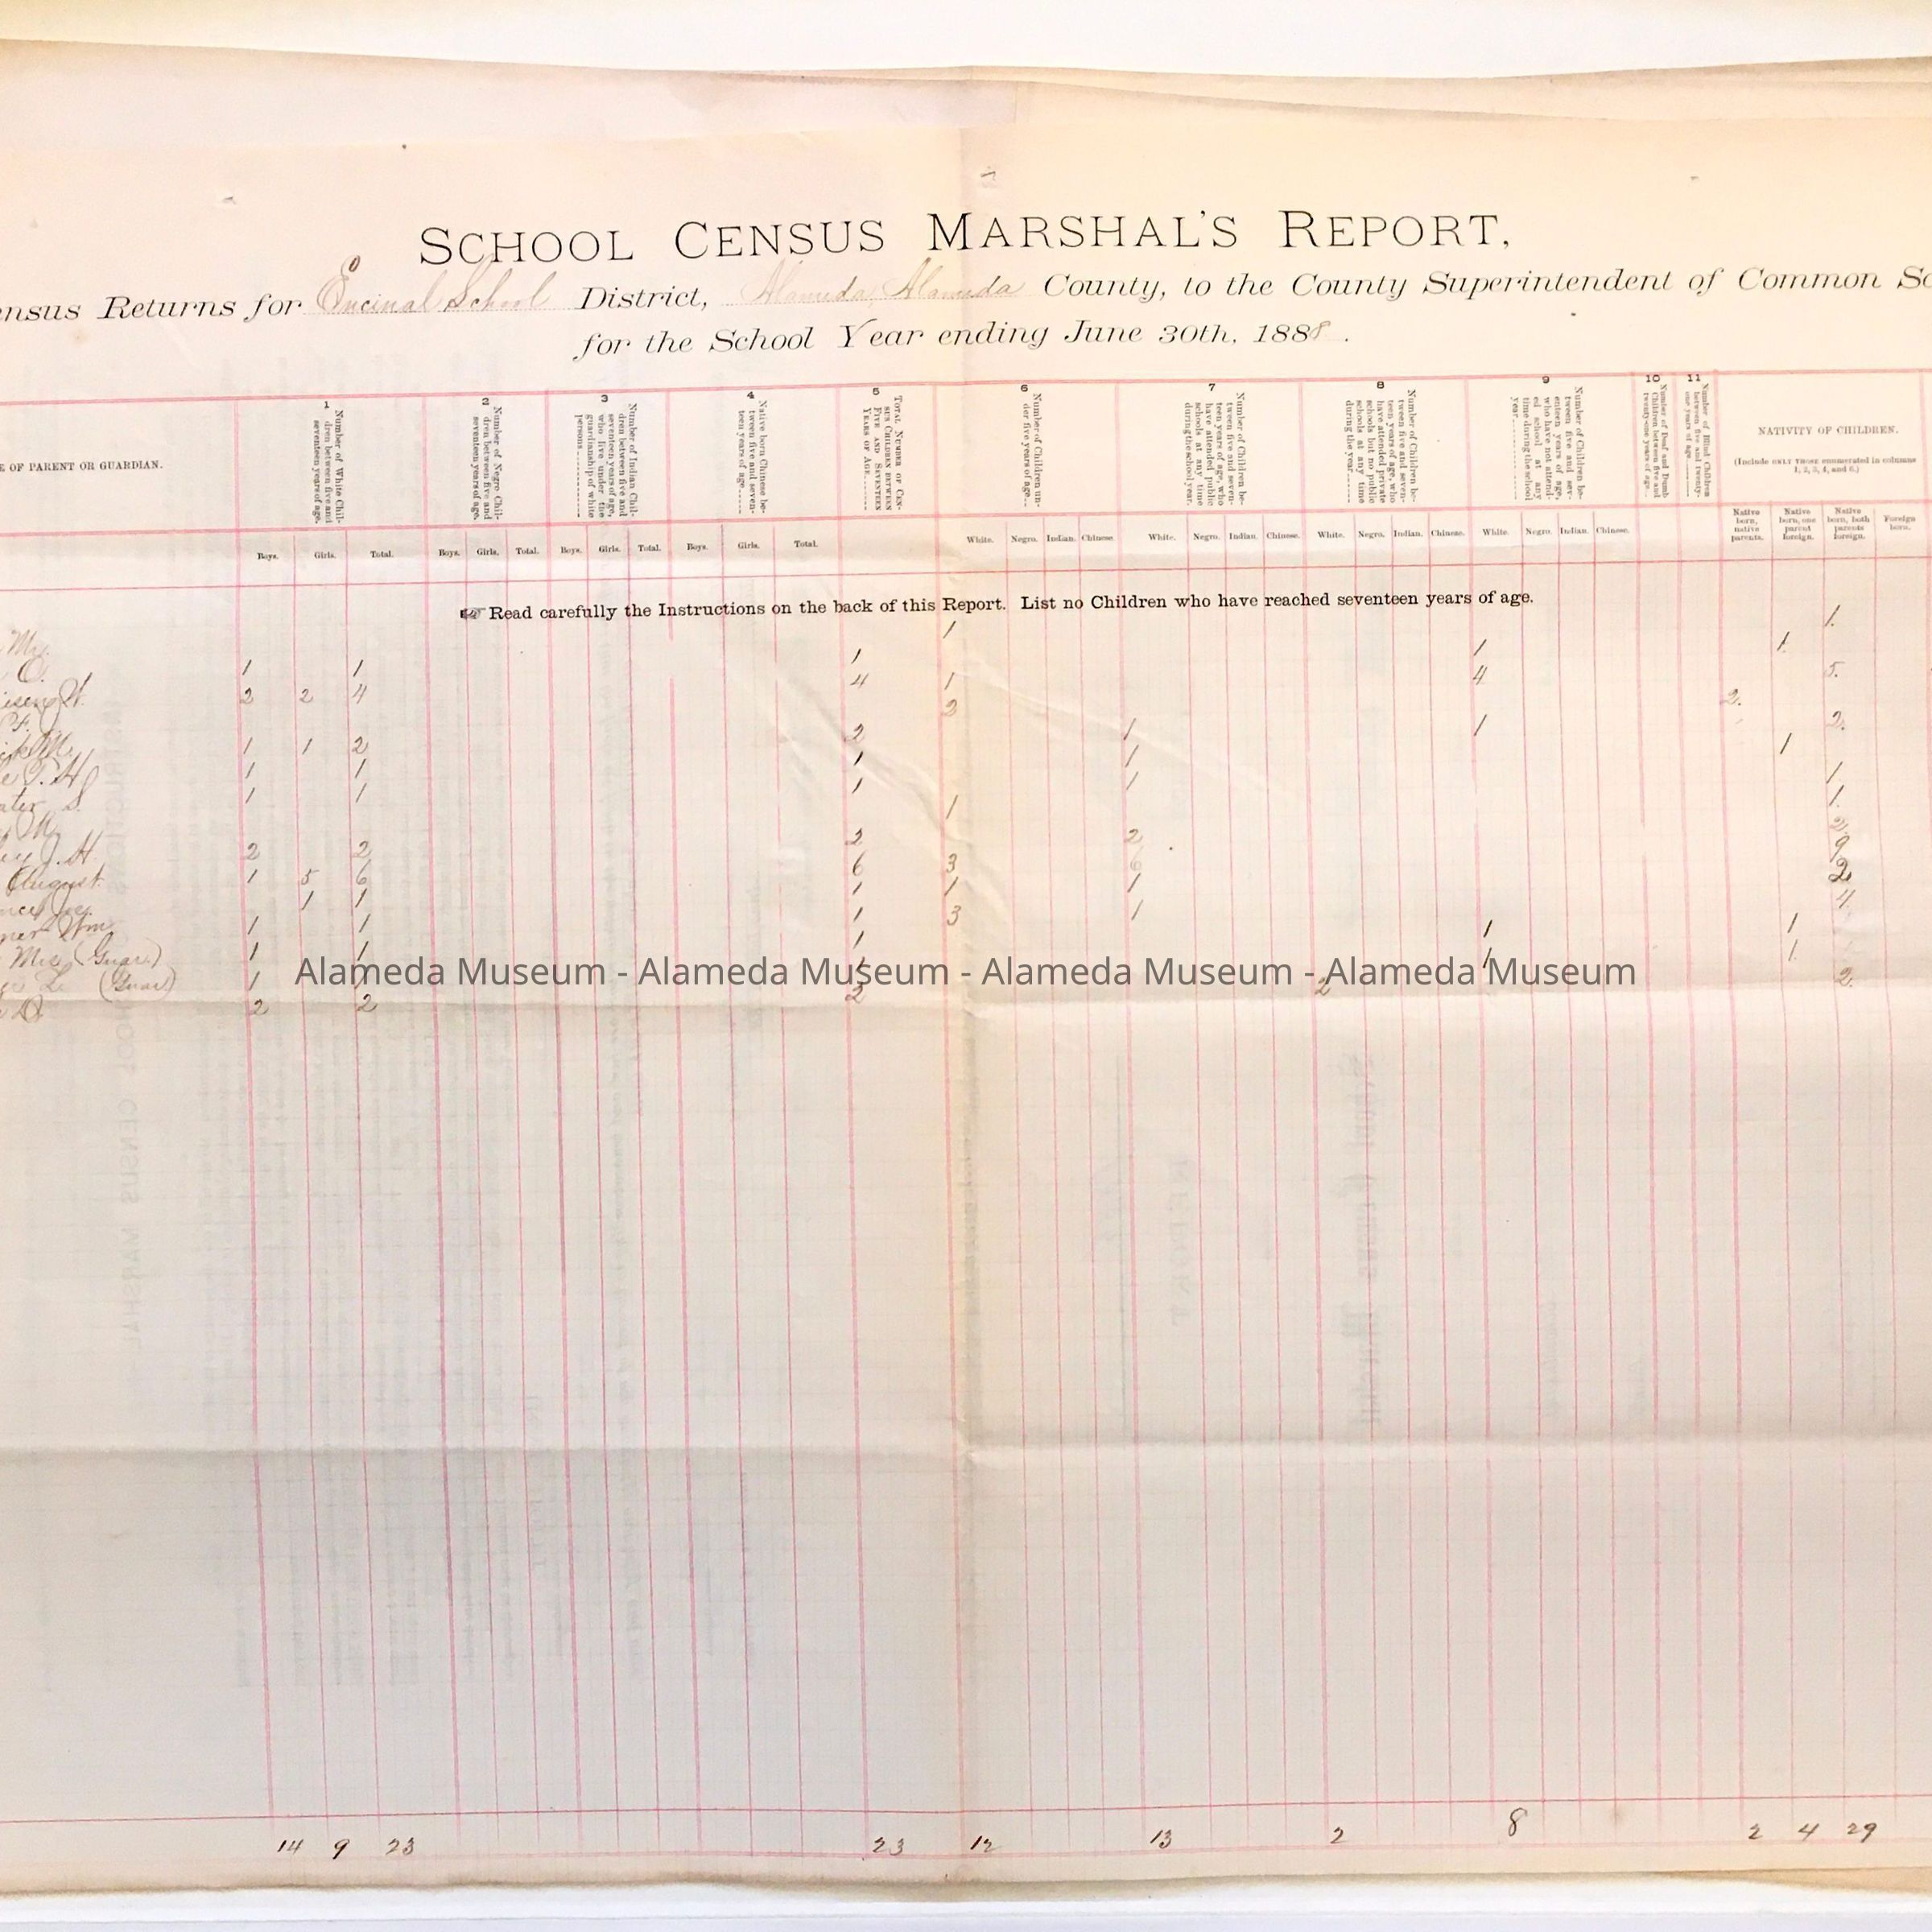 SCHOOL CENSUS MARSHAL'S REPORT,
ensus Returns for Encinal School District, Alameda, Alameda County, to the County Superintendent of Common Sc
for the School Year ending June 30th, 1888.
E OF PARENT OR GUARDIAN.
1 Number of White Children between five and seventeen years of age.
2 Number of Negro Children between five and seventeen years of age.
3 Number of Indian Children between five and seventeen years of age, who live under the guardianship of white persons
4 Native born Chinese between five and seventeen years of age
5 TOTAL NUMBER OF CENSUS CHILDREN BETWEEN FIVE AND SEVENTEEN YEARS OF AGE
6 Number of Children under five years of age
7 Number of Children between five and seventeen years of age, who have attended public schools at any time during the school year.
8 Number of Children between five and seventeen years of age, who have attended private schools but no public schools at any time during the year
9 Number of Children between five and seventeen years of age, who have not attended school at any time during the school year
10 Number of Deaf and Dumb Children between five and twenty-one years of age
11 Number of Blind Children between five and twenty-one years of age
NATIVITY OF CHILDREN.
(Include ONLY THOSE enumerated in columns 1, 2, 3, 4, and 6.)
Boys. Girls. Total. Boys. Girls. Total. Boys. Girls. Total. Boys. Girls. Total. White. Negro. Indian. Chinese. White. Negro. Indian. Chinese. White. Negro. Indian. Chinese. White. Negro. Indian. Chinese. Native born, native parents. Native born, one parent foreign. Native born, both parents foreign. Foreign born.
Read carefully the Instructions on the back of this Report. List no Children who have reached seventeen years of age.
1 1.
1 1 1 1 1.
2 2 4 4 1 4 5.
2 2.
1 1 2 2 1 1 2.
1 1 1 1 1
1 1 1 1 1.
1 1.
2 2 2 2 2
August. 1 5 6 6 3 6 9
1 1 1 1 1 2
Wm 1 1 1 3 1 4
Mrs (Guar.) 1 1 1 1 1
(Guar) 1 1 1 1 1.
2 2 2 2 2.
Alameda Museum - Alameda Museum - Alameda Museum - Alameda Museum
14 9 23 23 12 13 2 8 2 4 29